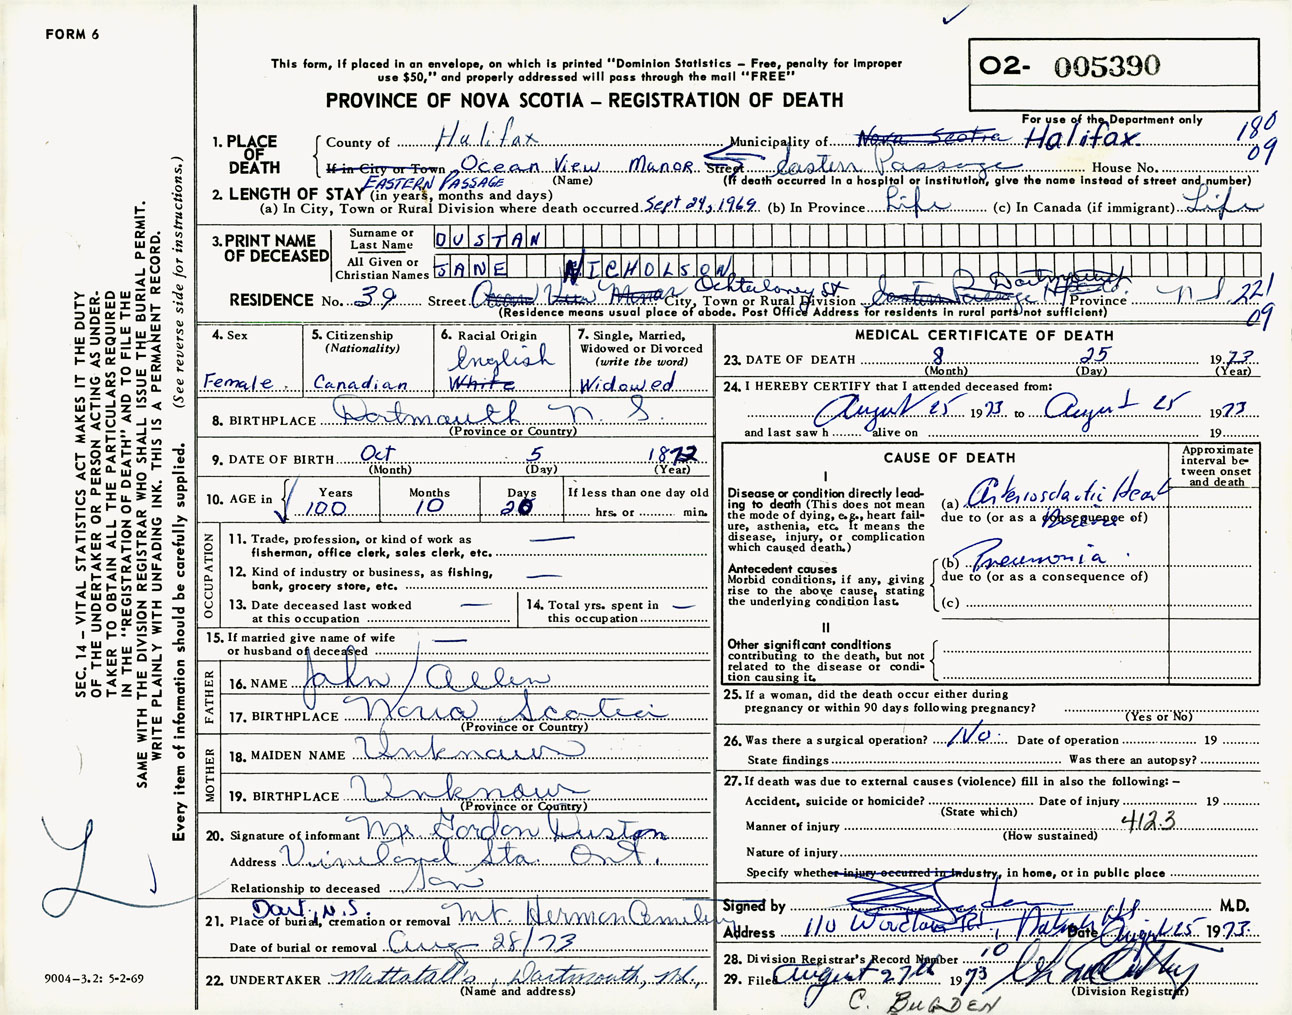 FORM 6
This form, if placed in an envelope, on which is printed "Dominion Statistics – Free, penalty for improper
use $50," and properly addressed will pass through the mail "FREE"
PROVINCE OF NOVA SCOTIA – REGISTRATION OF DEATH
O2- 005390
For use of the Department only
180
09
1. PLACE OF DEATH
County of Halifax Municipality of Nova Scotia Halifax.
If in City or Town Ocean View Manor Street Eastern Passage House No.
EASTERN PASSAGE (Name) (If death occurred in a hospital or institution, give the name instead of street and number)
2. LENGTH OF STAY (in years, months and days)
(a) In City, Town or Rural Division where death occurred Sept 24, 1969 (b) In Province Life (c) In Canada (if immigrant) Life
3. PRINT NAME OF DECEASED
Surname or Last Name DUSTAN
All Given or Christian Names JANE NICHOLSON
RESIDENCE No. 39 Street Ocean View Manor Ochterloney St City, Town or Rural Division Eastern Passage Dartmouth Province N S 221
09
(Residence means usual place of abode. Post Office Address for residents in rural parts not sufficient)
4. Sex
Female.
5. Citizenship
(Nationality)
Canadian
6. Racial Origin
English
White
7. Single, Married,
Widowed or Divorced
(write the word)
Widowed
8. BIRTHPLACE Dartmouth N. S.
(Province or Country)
9. DATE OF BIRTH Oct 5 1872
(Month) (Day) (Year)
10. AGE in
Years Months Days If less than one day old
100 10 20 hrs. or min.
OCCUPATION
11. Trade, profession, or kind of work as
fisherman, office clerk, sales clerk, etc. —
12. Kind of industry or business, as fishing,
bank, grocery store, etc. —
13. Date deceased last worked
at this occupation —
14. Total yrs. spent in
this occupation —
15. If married give name of wife
or husband of deceased —
FATHER
16. NAME John Allen
17. BIRTHPLACE Nova Scotia
(Province or Country)
MOTHER
18. MAIDEN NAME Unknown
19. BIRTHPLACE Unknown
(Province or Country)
20. Signature of informant Mr. Gordon Dustan
Address Vineland Sta. Ont.
Relationship to deceased Son
Dart., N.S.
21. Place of burial, cremation or removal Mt. Hermon Cemetery
Date of burial or removal Aug 28/73
22. UNDERTAKER Mattatall's, Dartmouth, N.S.,
(Name and address)
MEDICAL CERTIFICATE OF DEATH
23. DATE OF DEATH 8 25 1973
(Month) (Day) (Year)
24. I HEREBY CERTIFY that I attended deceased from:
August 25 1973 to August 25 1973
and last saw h alive on 19
CAUSE OF DEATH
Approximate
interval be-
tween onset
and death
I
Disease or condition directly lead-
ing to death (This does not mean
the mode of dying, e.g., heart fail-
ure, asthenia, etc. It means the
disease, injury, or complication
which caused death.)
(a) Arteriosclerotic Heart
due to (or as a consequence of)
Antecedent causes
Morbid conditions, if any, giving
rise to the above cause, stating
the underlying condition last.
(b) Pneumonia.
due to (or as a consequence of)
(c)
II
Other significant conditions
contributing to the death, but not
related to the disease or condi-
tion causing it.
25. If a woman, did the death occur either during
pregnancy or within 90 days following pregnancy?
(Yes or No)
26. Was there a surgical operation? No. Date of operation 19
State findings Was there an autopsy?
27. If death was due to external causes (violence) fill in also the following: –
Accident, suicide or homicide? Date of injury 19
(State which)
Manner of injury 412.3
(How sustained)
Nature of injury
Specify whether injury occurred in industry, in home, or in public place
Signed by M.D.
Address 110 Date August 25 1973.
28. Division Registrar's Record Number 10
29. Filed August 27th 1973
(Division Registrar)
C. BUGDEN
SEC. 14 – VITAL STATISTICS ACT MAKES IT THE DUTY
OF THE UNDERTAKER OR PERSON ACTING AS UNDER-
TAKER TO OBTAIN ALL THE PARTICULARS REQUIRED
IN THE "REGISTRATION OF DEATH" AND TO FILE THE
SAME WITH THE DIVISION REGISTRAR WHO SHALL ISSUE THE BURIAL PERMIT.
WRITE PLAINLY WITH UNFADING INK. THIS IS A PERMANENT RECORD.
Every item of information should be carefully supplied. (See reverse side for instructions.)
9004–3.2: 5-2-69